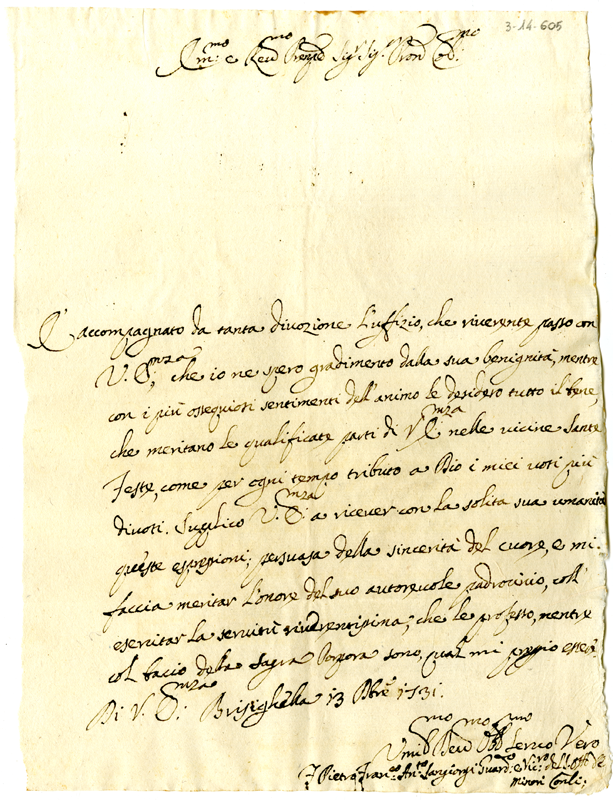 3-14-605
E.mo e Rev.mo Prenpe Sig.r Sig.r Pron Col.mo
È accompagnato da tanta divozione l'uffizio, che riverente passo con
V. E.mza, che io ne spero gradimento dalla sua benignità, mentre
con i più osequiosi sentimenti dell'animo le desidero tutto il bene,
che meritano le qualificate parti di V. E.mza nelle vicine Sante
Feste, come per ogni tempo tributo a Dio i miei voti più
divoti. Supplico V. E.mza a ricever con la solita sua umanità
queste espressioni; persuasa della sincerità del cuore, e mi
faccia meritar l'onore del suo autorevole padrocinio, coll'
esercitar la servitù riverentissima, che le professo, mentre
col bacio della Sagra Porpora sono, qual mi pregio esser.
Di V. E.mza Brisighella 13 Xbre 1731.
Umil.mo Dev.mo Obb.mo Servo Vero
F. Pietro Fran.co Ant.o Sangiorgi Guard.o e Vic.rio del S. Off. de
Minori Con.li